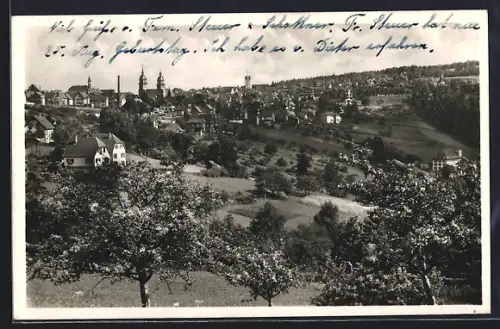 Viel Grüße v. Fam. Steuer u. Schottner. Fr. Steuer hat am
25. Aug. Geburtstag. Ich habe es v. Dieter erfahren.